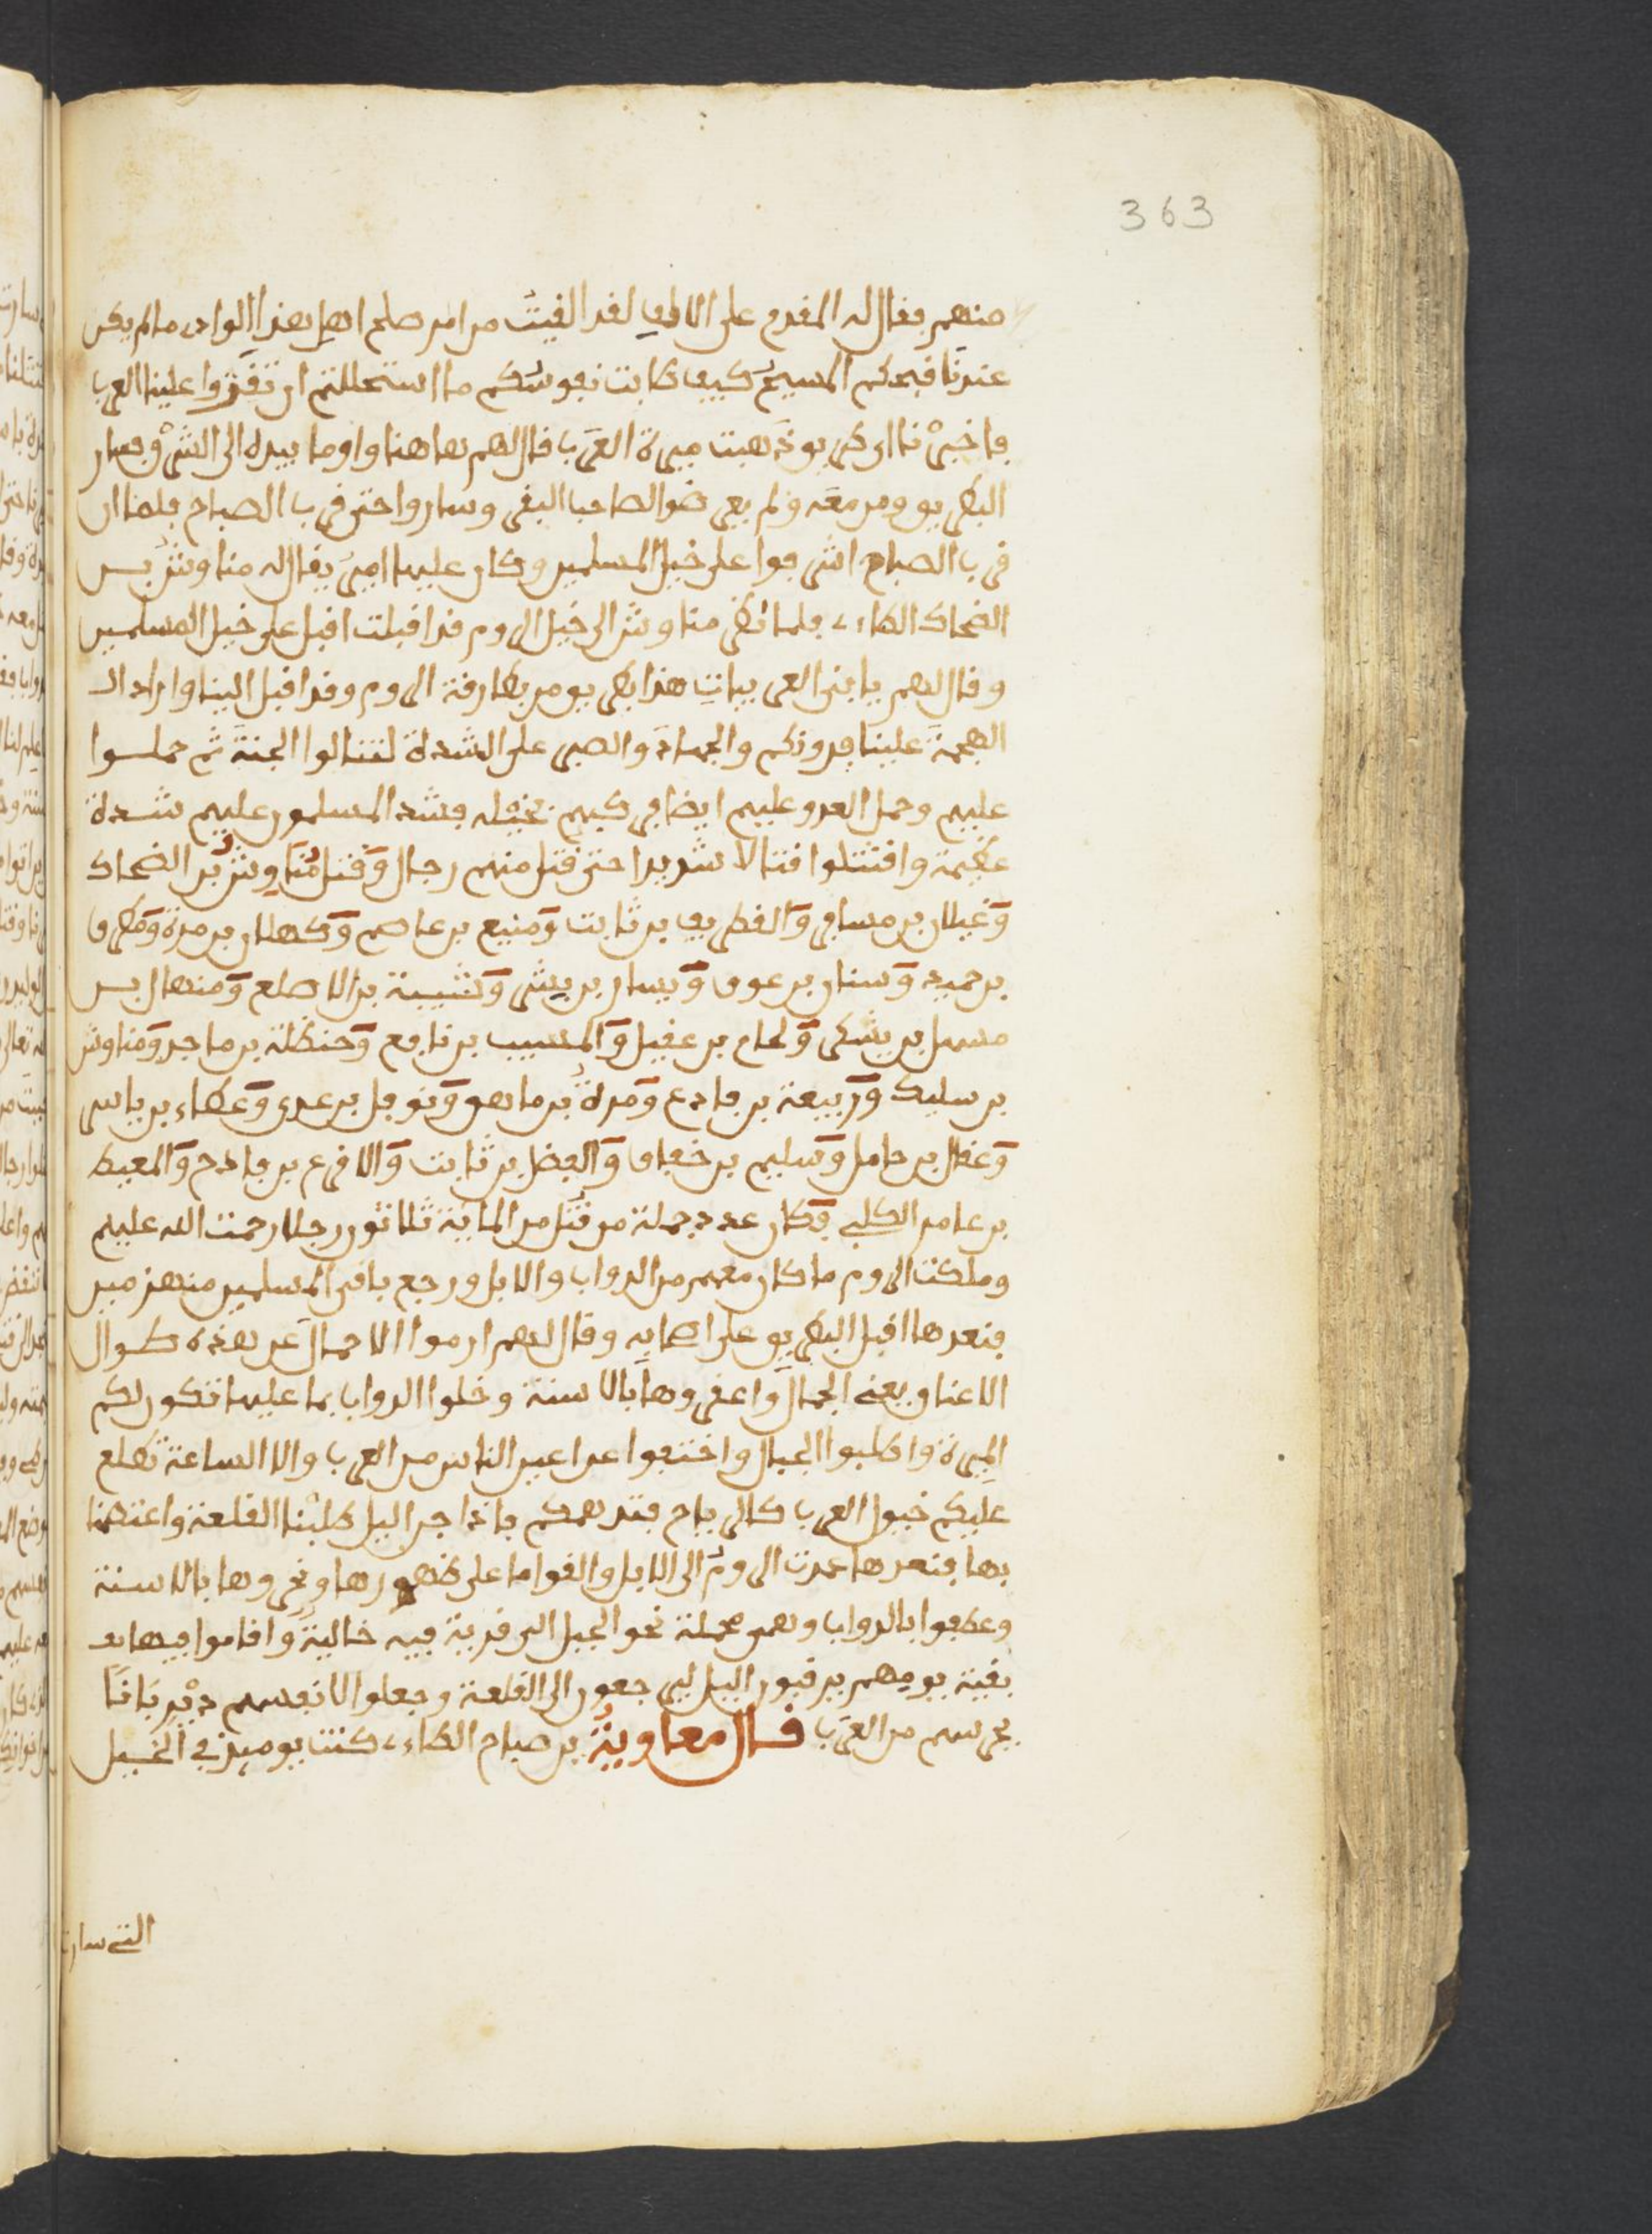 363
منهم فقال له المقدم على الالف لقد الفيت من امر صلح اهل هذا الواد ما لم يكن
عندنا قبحكم المسيح كيف طابت نفوسكم ما استحللتم ان تقفزوا علينا العرب
فاخبرنا اي طريق ذهبت ميرة العرب قال لهم هاهنا واوما بيده الى الشرق فسار
البطريق ومن معه ولم يعرضوا لصاحب البقر وساروا حتى قرب الصباح فلما ان
قرب الصباح اشرفوا على خيل المسلمين وكان عليها امير يقال له مناوش بن
الضحاك الطاءي فلما نظر مناوش الى خيل الروم قد اقبلت اقبل على خيل المسلمين
وقال لهم يا بني العربيات هذا بطريق من بطارقة الروم وقد اقبل الينا واراد ال
الهجمة علينا فدونكم والجهاد والصبر على الشدة لتنالوا الجنة ثم حملوا
عليهم وحمل العدو عليهم ايضا في كبير بخيله فشد المسلمون عليهم شدة
عظيمة واقتتلوا قتالا شديدا حتى قتل منهم رجال وقتل مناوش بن الضحاك
وغيلان بن مسافر والغطريف بن ثابت ومنيع بن عاصم وكهلان بن مرة ومطرف
بن حميد وسنان بن عوف ويسار بن بشر وشيبة بن الاصلع ومنهال بن
مسهل بن يشكر ولحام بن عقيل والمسيب بن نافع وحنظلة بن ماجد ومناوش
بن سليك وربيعة بن فادع ومرة بن ماهر ونوفل بن عدي وعطاء بن ياسر
وعقال بن حامل وسليم بن خفاف والفضل بن ثابت والاقرع بن فادح والمعيط
بن عامر الكلبي فكان عدد جملة من قتل من الماية ثلاثون رجلا رحمت الله عليهم
وملكت الروم ما كان معهم من الدواب والابل ورجع باقي المسلمين منهزمين
فبعدها اقبل البطريق على اصحابه وقال لهم ارموا الاحمال عن هذه طوال
الاعناق يعني الجمال واعقروها بالاسنة وخلوا الدواب بما عليها تكون لكم
الميرة واطلبوا الجبال واختفوا عن اعين الناس من العرب والا الساعة تطلع
عليكم خيول العرب كالرياح فتدهمكم فاذا جن اليل طلبنا القلعة واعتصمنا
بها فبعدها عمدت الروم الى الابل والقوا ما على ظهورها ونحروها بالاسنة
وعطفوا بالدواب وهي محملة نحو الجبل الى قرية فيه خالية واقاموا فيها
بقية يومهم يرقبون اليل ليرجعون الى القلعة وجعلوا لانفسهم ديدبانا
يحرسهم من العرب قال معاوية بن صباح الطاءي كنت يوميذ في الخيل
التي سارت